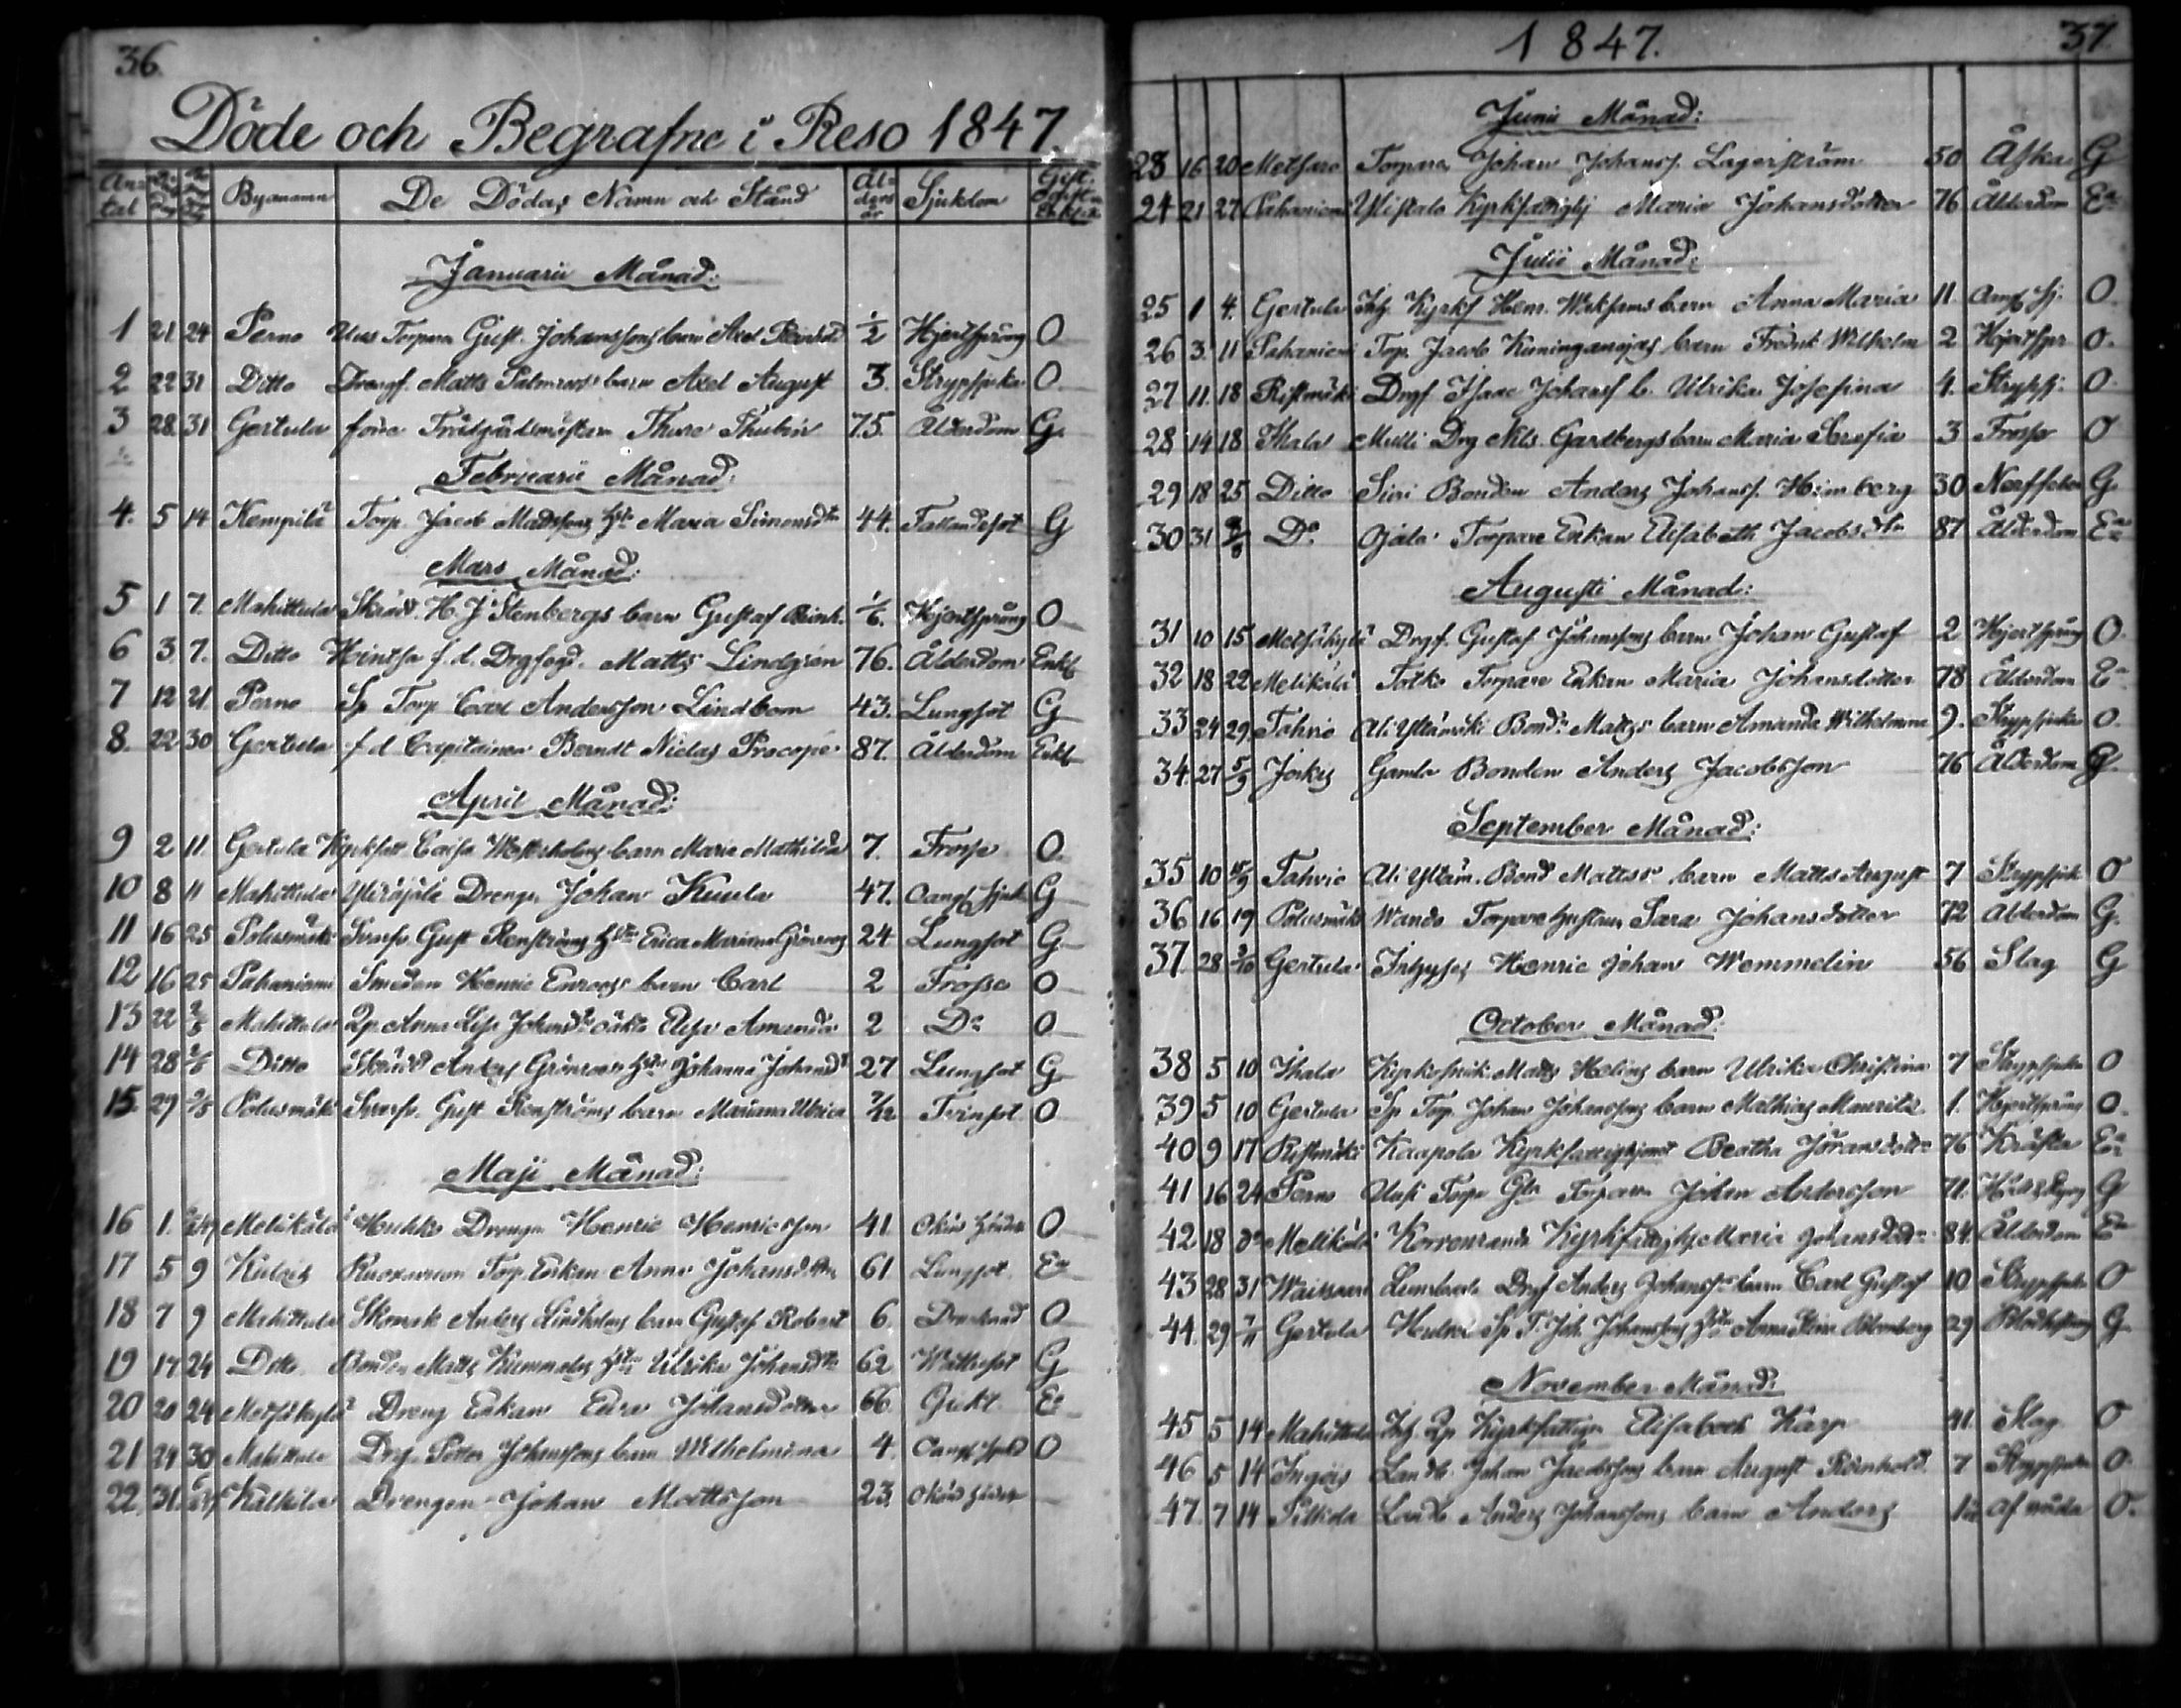 36.
Döde och Begrafne i Reso 1847.
Antal Byanamn De Dödas Namn och Stånd Ålders år Sjukdom Gift Ogift Enkl.
Januarii Månad:
1 21 24 Perno Uus Torparn Gust. Johanssons barn Axel 1/2 Hjertsprång O
2 22 31 Ditto Drengs. Matts Palmroos barn Axel August 3. Strypsjuka O
3 28. 31 Gertula förra Trädgårdsmästarn Thure Thubin 75. Ålderdom G.
Februarii Månad:
4. 5 14 Kempilä Torp. Jacob Madssons Hst. Maria Simonsdtr 44. Fallandesot G
Mars Månad:
5 1 7. Mahittula Skrädd. H. J. Stenbergs barn Gustaf Reinh. 1/6. Hjertsprång O
6 3. 7. Ditto Hintsa f.d. Matts Lindgren 76. Ålderdom Enkl
7 12 21 Perno Sp Torp Carl Andersson Lindbom 43. Lungsot G
8. 22 30 Gertula f d Capitainen Berndt Niclas Procopé 87. Ålderdom Enkl
April Månad:
9 2 11. Gertula Kyrkfatt. Caisa Westerholms barn Maria Mathilda 7. Frossa O.
10 8 11 Mahittula Yliöjälä Drengn Johan Kuula 47. G
11 16 25 Polusmäki Gust Renströms Hstr Erica Mariana Grönroos 24 Lungsot G
12 16 25 Pahaniemi Smeden Henric Enroos barn Carl 2 Frossa O
13 22 2/5 Mahittula Qp Anna Lisa Johansdtr oäkta Elisa Amanda 2 Do O
14 28 2/5 Ditto Skrädd Anders Grönroos Hstr Johanna Johansdr 27 Lungsot G
15. 29 2/5 Polusmäki Gust Renströms barn Mariana Ulrica 7/12 Tvinsot O
Maji Månad:
16 1. Melikälä Huhko Drengn Henric Henricsson 41. Okän händelse O
17 5 9 Torp. Enkan Anna Johansdotter 61 Lungsot. Ea
18 7 9 Mahittula Skomak Anders Lindholms barn Gustaf Robert 6 Drucknad O
19 17 24 Ditto Bonden Matts Kummelas Hstr Ulrika Johansdtr 62 Wattusot G
20 20 24 Metsäkylä Dreng Enkan Eva Johansdotter 66. Gickt. Ea
21 24 30 Mahittula Drg. Petter Johanssons barn Wilhelmina 4. O
22. 31. Kulkila Drengen Johan Mattsson 23.
1847. 37
Junii Månad:
23 16 20 Metsaro Torparen Johan Johanss. Lagerström 50 Åska G
24 21 27 Pahaniemi Ylistalo Kyrkfattighj Maria Johansdotter 76 Ålderdom Ea
Julii Månad:
25 1 4. Gertula Inh. Kyrkf Henr. barn Anna Maria 11 O.
26 3. 11 Pahaniemi Torp. Jacob Kuningaanojas barn Fredrik Wilhelm 2 Hjertspr O.
27 11. 18 Ristimäki Drgs Isaac Johanss b. Ulrika Josefina 4. Strypsj. O
28 14 18 Ihala Mulli Drg Mls. Gardbergs barn Maria Serafia 3 Frossa O
29 18 25 Ditto Siivi Bonden Anders Johanss. Heimberg 30 Nerffeber G
30 31 8/8 Do Ojala Torpare Enkan Elisabeth Jacobsdtr 87 Ålderdom Ea
Augusti Månad:
31 10 15 Metsäkylä Drgs. Gustaf Johanssons barn Johan Gustaf 2 Hjertsprång O.
32 18 22 Melikälä Totko Torpare Enkan Maria Johansdotter 78 Ålderdom Ea
33 24 29. Tahvio Ali Yltämäki Bond. Mattss barn Amanda Wilhelmina 9. Strypsjuka O.
34. 27 5/9 Gamla Bonden Anders Jacobsson 76 Ålderdom G.
September Månad:
35 10 Tahvio Ali Yltäm. Bond Mattss barn Matts August 7 Strypsjuk O
36 16 19 Polusmäki Wando Torpare hustrun Sara Johansdotter 72 Ålderdom G.
37. 28 3/10 Gertula Inhyses Henric Johan Wemmelin 56 Slag G
October Månad:
38 5 10 Ihala Matts Helins barn Ulrika Christina 7 Strypsjuka O
39 5 10 Gertula Sp Torp. Johan Johanssons barn Mathias Mauritz 1. Hjertsprång O.
40 9 17 Ristimäki Kaapola Kyrkfattighjonet Beatha Jöransdotter 76 Kräfta Ea
41 16 24 Perno Uusi Torp Gla Torparen Johan Andersson 71. G
42 18 do Melikälä Korvenranda Kyrkfattighj Maria Johansdotter 84. Ålderdom Ea
43 28 31 Drgs Anders Johanss barn Carl Gustaf 10 Strypsjuka O
44. 29 7/11 Gertula Sp T. Joh. Johanssons Hstr Anna Stina Blomberg 29 Blodhostning G.
November Månad:
45 5 14 Mahittula Inh Qp Kyrkfattiga Elisabeth Karp 41. Slag O
46 5 14 Ingois Landb. Johan Jacobssons barn August Reinhold. 7 Strypsjuka O.
47. 7 14 Pilkola Landb. Anders Johanssons barn Anders Af våda O.